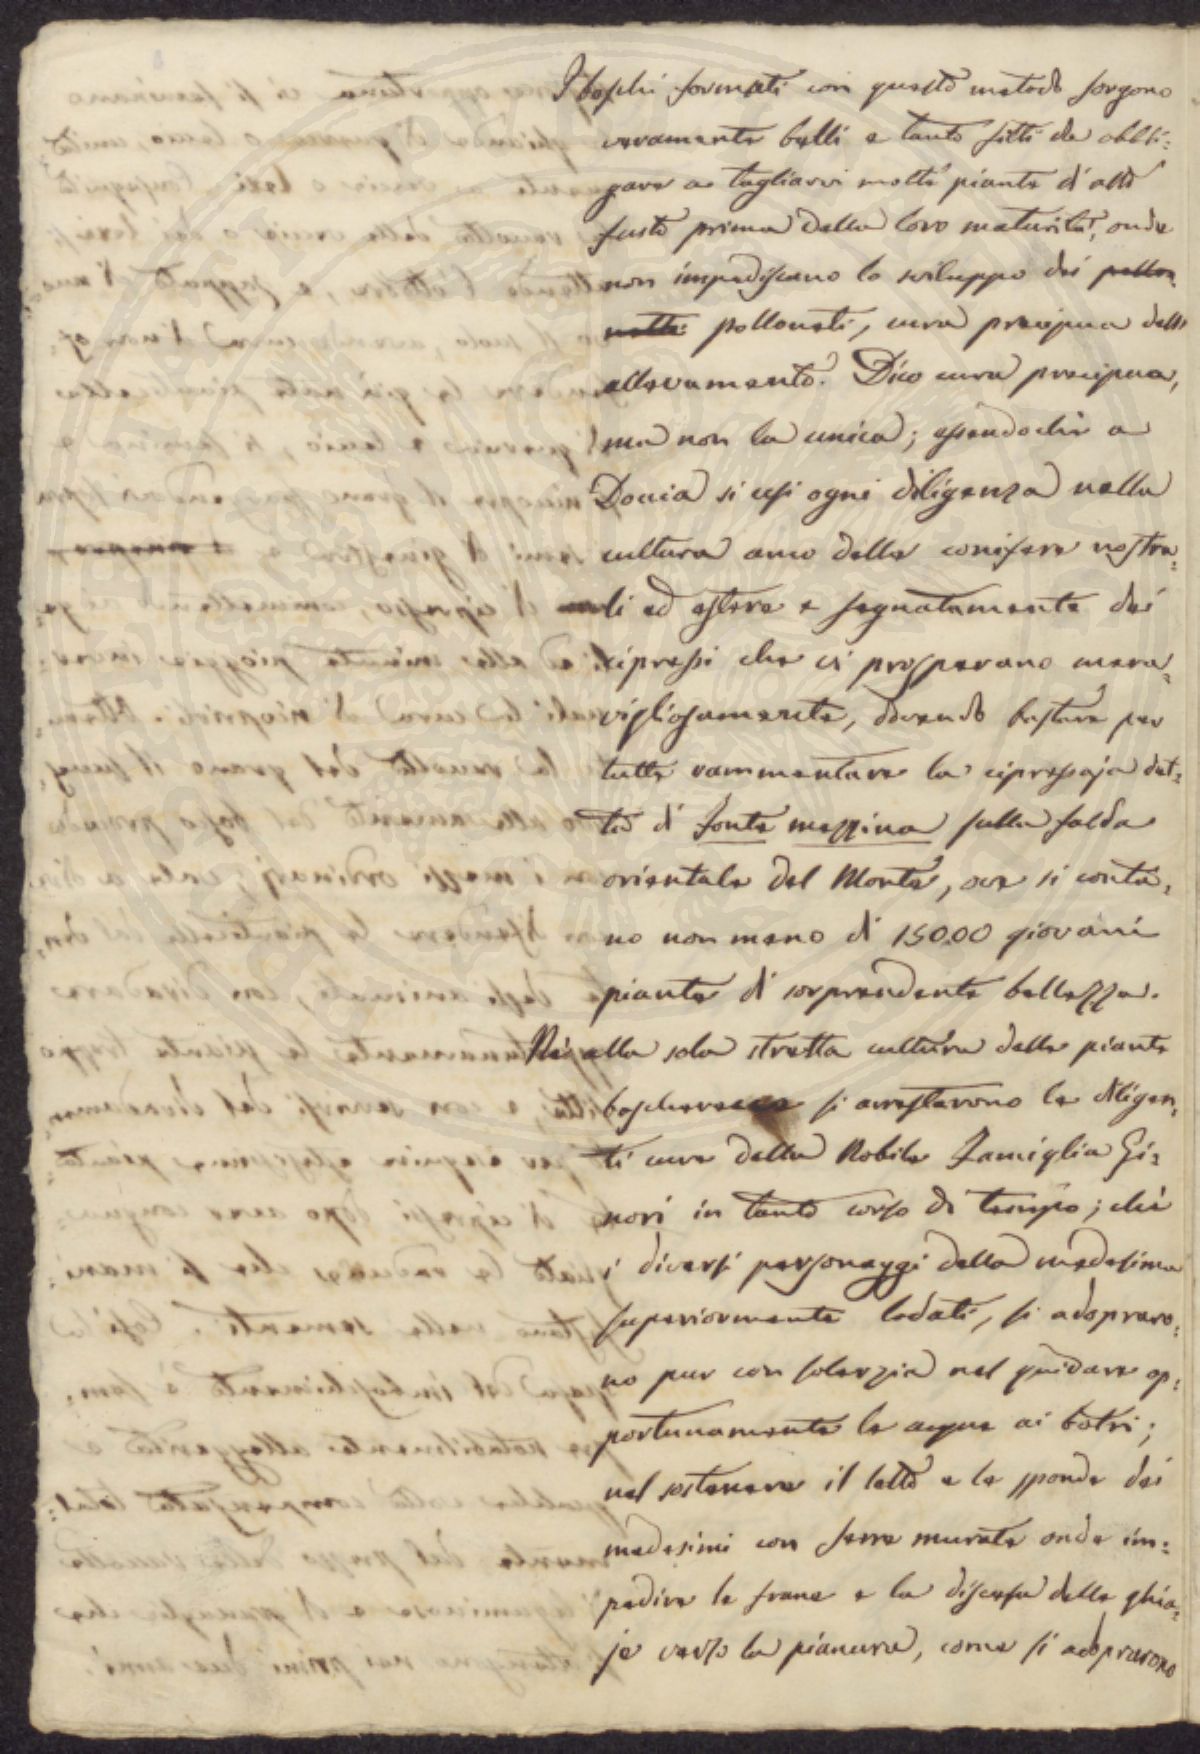 I boschi formati con questo metodo sorgono
veramente belli e tanto fitti da obbli=
gare a tagliarvi molte piante d'alto
fusto prima della loro maturità, onde
non impediscano lo sviluppo dei pollo=
netti pollonati, cura precipua dello
allevamento. Dico cura precipua,
ma non la unica; essendochè a
Doccia si usi ogni diligenza nella
cultura anco delle conifere nostra=
li ed estere e segnatamente dei
cipressi che ci prosperano mera=
vigliosamente, dovendo bastare per
tutte rammentare la cipressaja det=
ta di Fonte mezzina sulla falda
orientale del Monte, ove si conta=
no non meno di 15000 giovani
piante di sorprendente bellezza.
Nè alla sola stretta cultura delle piante
boscherecce si arrestarono le diligen=
ti cure della Nobile Famiglia Gi=
nori in tanto corso di tempo; chè
i diversi personaggi della medesima
superiormente lodati, si adoprara=
no pur con solerzia nel guidare op=
portunamente le acque ai botri;
nel sostenere il letto e le sponde dei
medesimi con serre murate onde im=
pedire le frane e la discesa delle ghia=
je verso la pianura, come si adoprarono